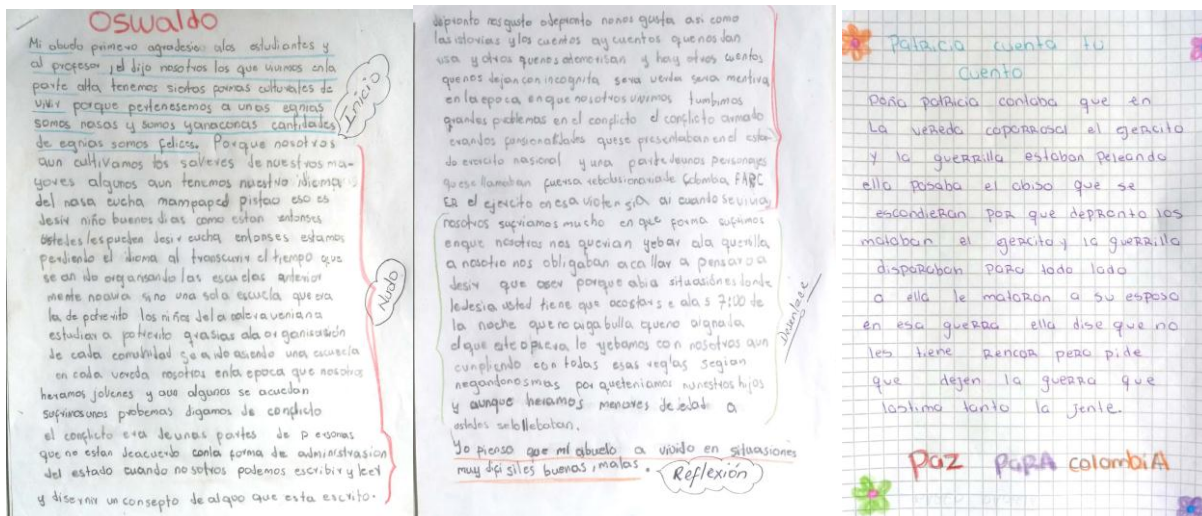 Oswaldo
Mi abuelo primero agradesio alos estudiantes y
al profesor, el dijo nosotros los que vivimos enla
parte alta tenemos siertas formas culturales de
vivir porque pertenesemos a unas egnias
somos nasas y somos yanaconas cantidades
de egnias somos felices. Porque nosotros
aun cultivamos los saveres de nuestros ma-
yores algunos aun tenemos nuestro idioma
del nasa eucha mampaped pistao eso es
desir niño buenos dias como estan entonses
ustedes les pueden desir eucha entonses estamos
perdiendo el idioma al transcurrir el tiempo que
se an ido organsando las escuelas anterior
mente noavia sino una sola escuela que era
la de potrerito los niños del a calera veniana
estudiar a potrerito grasias ala organisasión
de cada comunidad se a ido asiendo una escuela
en cada vereda nosotros enla epoca que nosotros
heramos jovenes y aun algunos se acuerdan
sufrimos unos probemas digamos de conflicto
el conflicto era de unas partes de personas
que no estan deacuerdo conla forma de administrasion
del estado cuando nosotros podemos escribir y leer
y disernir un consepto de algo que esta escrito.
Inicio
Nudo
depronto nos gusto odepronto nonos gusta asi como
las istorias y los cuentos ay cuentos que nos dan
risa y otros quenos atemorisan y hay otros cuentos
quenos dejan con incognita sera verda sera mentira
en la epoca en que nosotros vivimos tumbimos
grandes problemas en el conflicto el conflicto armado
erandos que se presentaban en el esta-
do ejercito nacional y una parte deunos personajes
que se llamaban fuersa rebolusionaria de Colombia FARC
ER el ejercito en esa violensia ai cuando se vivia
nosotros sufriamos mucho en que forma sufrimos
enque nosotros nos querian yebar ala guerilla
a nosotro nos obligaban a callar a pensar o a
desir que aser porque abia situasiónes donde
le desia usted tiene que acostarse ala s 7:00 de
la noche que no aiga bulla que no aignada
el que este afuera lo yebamos con nosotros aun
cunpliendo con todas esas reglas segian
negandonos mas por que teniamos nuestros hijos
y aunque heramos menores de edad a
ustedes se bllebaban.
Desenlace
Yo pienso que mi abuelo a vivido en situasiones
muy difisiles buenas, malas.
Reflexión
Patricia cuenta tu
cuento
Doña patricia contaba que en
La vereda coparrosal el ejercito
y la guerrilla estaban peleando
ella pasaba el abiso que se
escondieran por que depronto los
mataban el ejercito y la guerrilla
disparaban para todo lado
a ella le mataron a su esposo
en esa guerra ella dise que no
les tiene rencor pero pide
que dejen la guerra que
lastima tanto la jente.
Paz para colombia